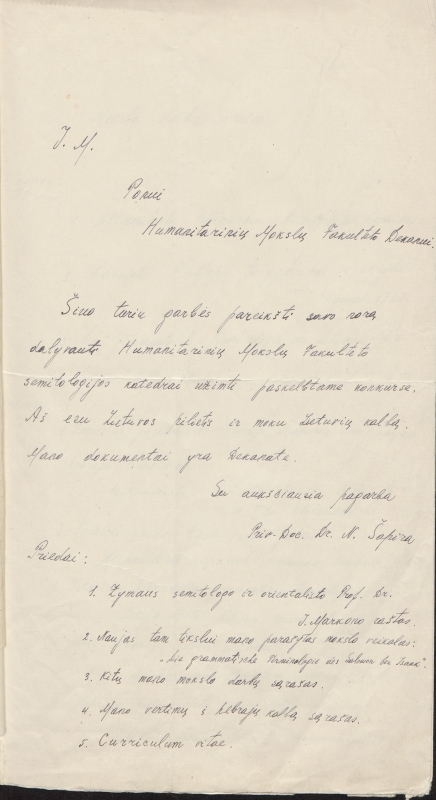 J. M.
Ponui
Humanitarinių Mokslų Fakulteto Dekanui.
Šiuo turiu garbės pareikšti savo norą
dalyvauti Humanitarinių Mokslų Fakulteto
semitologijos katedrai užimti paskelbtame konkurse.
Aš esu Lietuvos pilietis ir moku lietuvių kalbą.
Mano dokumentai yra Dekanate.
Su aukščiausia pagarba
Priv-Doc. Dr. N. Šapira
Priedai:
1. Žymaus semitologo ir orientalisto Prof. Dr.
J. Markono raštas.
2. Naujas tam tikslui mano parašytas mokslo veikalas:
„Die grammatische Terminologie des Salomon ben Isaak".
3. Kitų mano mokslo darbų sąrašas.
4. Mano vertimų į hebrajų kalbą sąrašas.
5. Curriculum vitae.